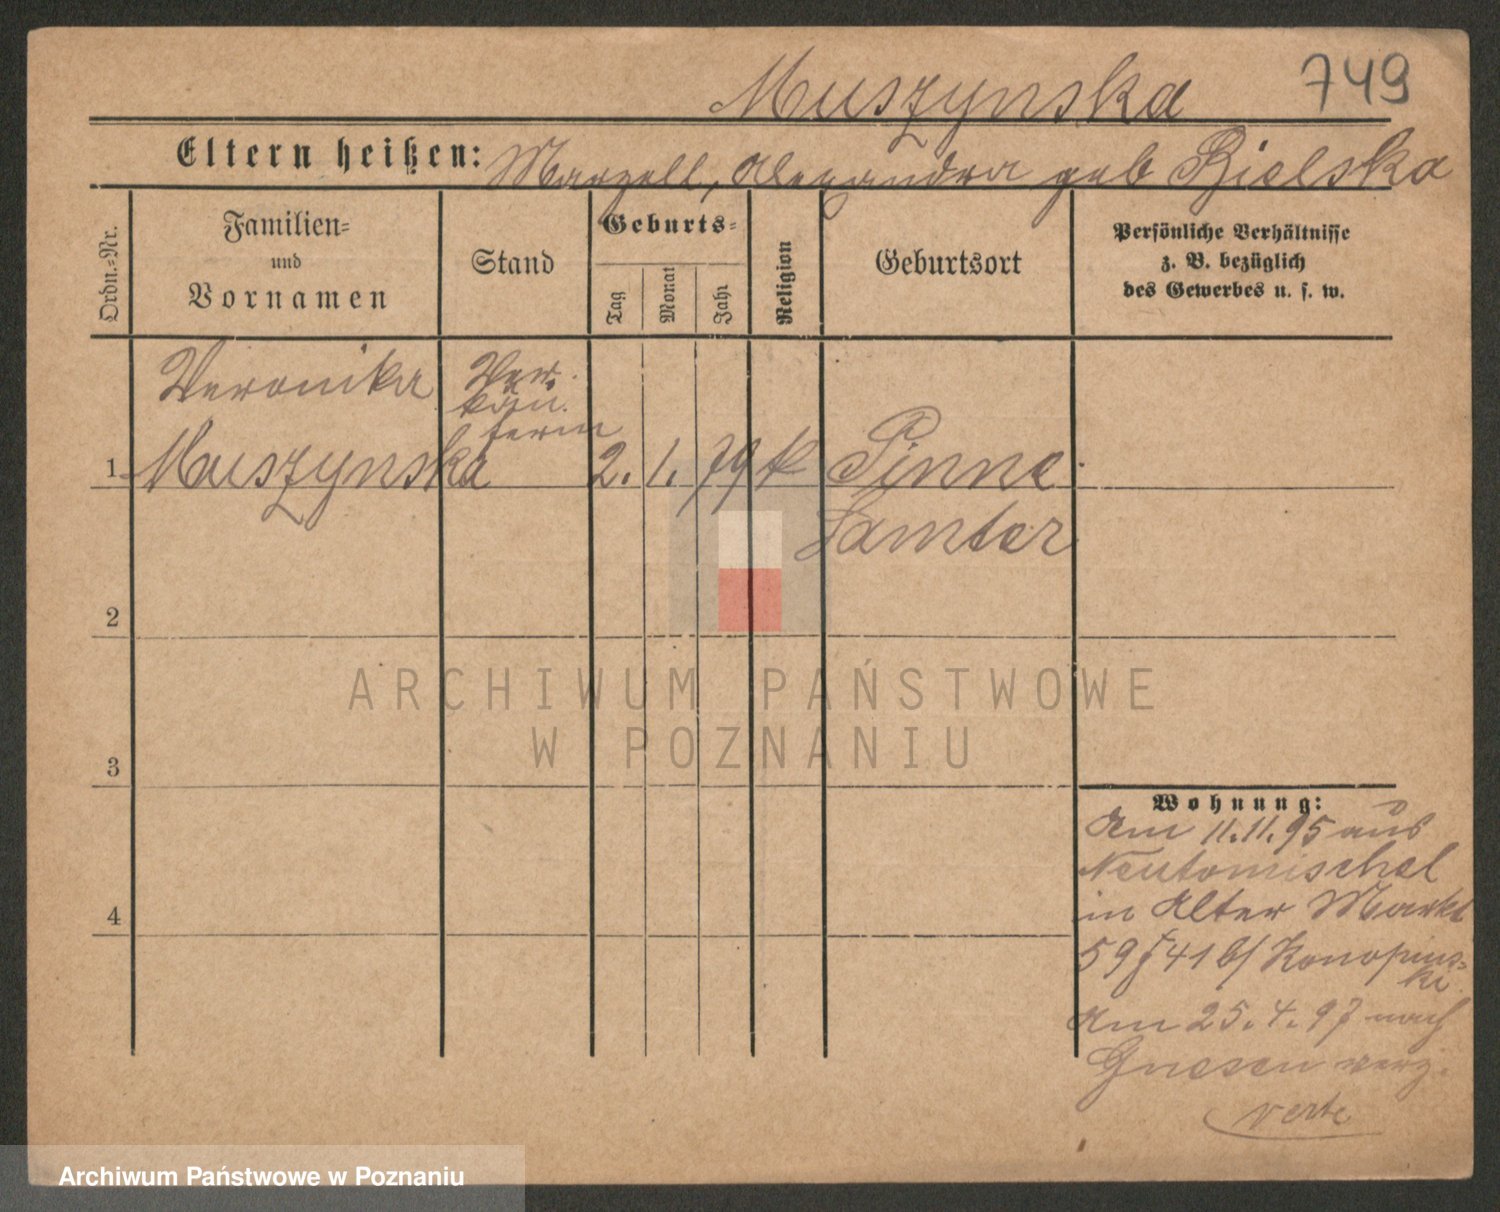 Muszynska 749
Eltern heißen: Marzell, Alexandra geb Bielska
Ordn.-Nr.
Familien-
und
Vornamen
Stand
Geburts-
Tag
Monat
Jahr
Religion
Geburtsort
Persönliche Verhältnisse
z. B. bezüglich
des Gewerbes u. s. w.
Veronika
Ver
käu
ferin
1 Muszynska 2. 1. 79 k Pinne
Samter
2
ARCHIWUM PAŃSTWOWE
W POZNANIU
3
Wohnung:
Am 11.11.95 aus
Neutomischel
in Alter Markt
59 41 b/ Konopins-
ki
Am 25.4.97 nach
Gnesen verz.
verte
4
Archiwum Państwowe w Poznaniu